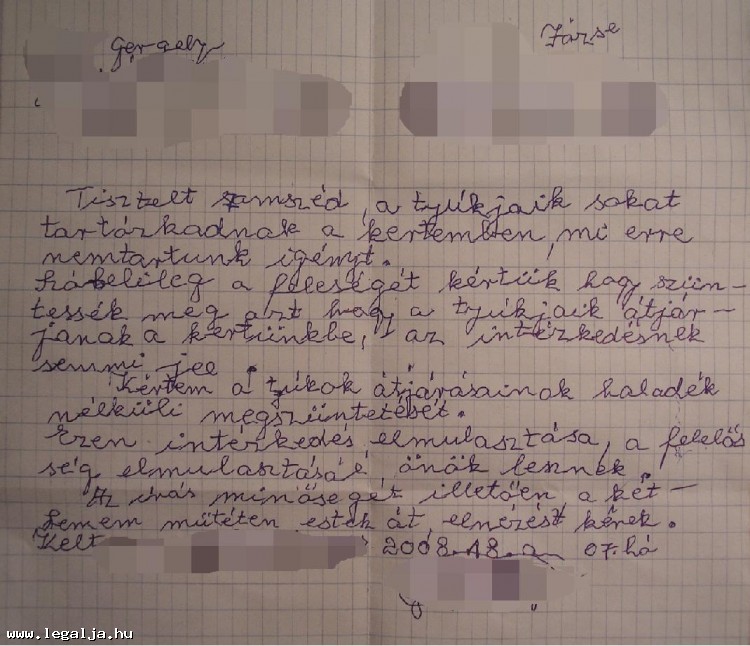 Gergely
Józse
Tisztelt szomszéd, a tyúkjaik sokat
tartózkadnak a kertemben, mi erre
nemtartunk igényt.
a feleségét kértük hogy szün-
tessék meg azt hogy a tyúkjaik átjár-
janak a kertünkbe, az intézkedésnek
semmi jee
Kértem a tyúkok átjárásainak haladék
nélküli megszüntetését.
Ezen intézkedés elmulasztása, a felelős
ség elmulasztásáé önök lesznek
Az írás minőségét illetően, a két-
szemem műtéten estek át, elnézést kérek.
Kelt 2008. 07. hó
www.legalja.hu